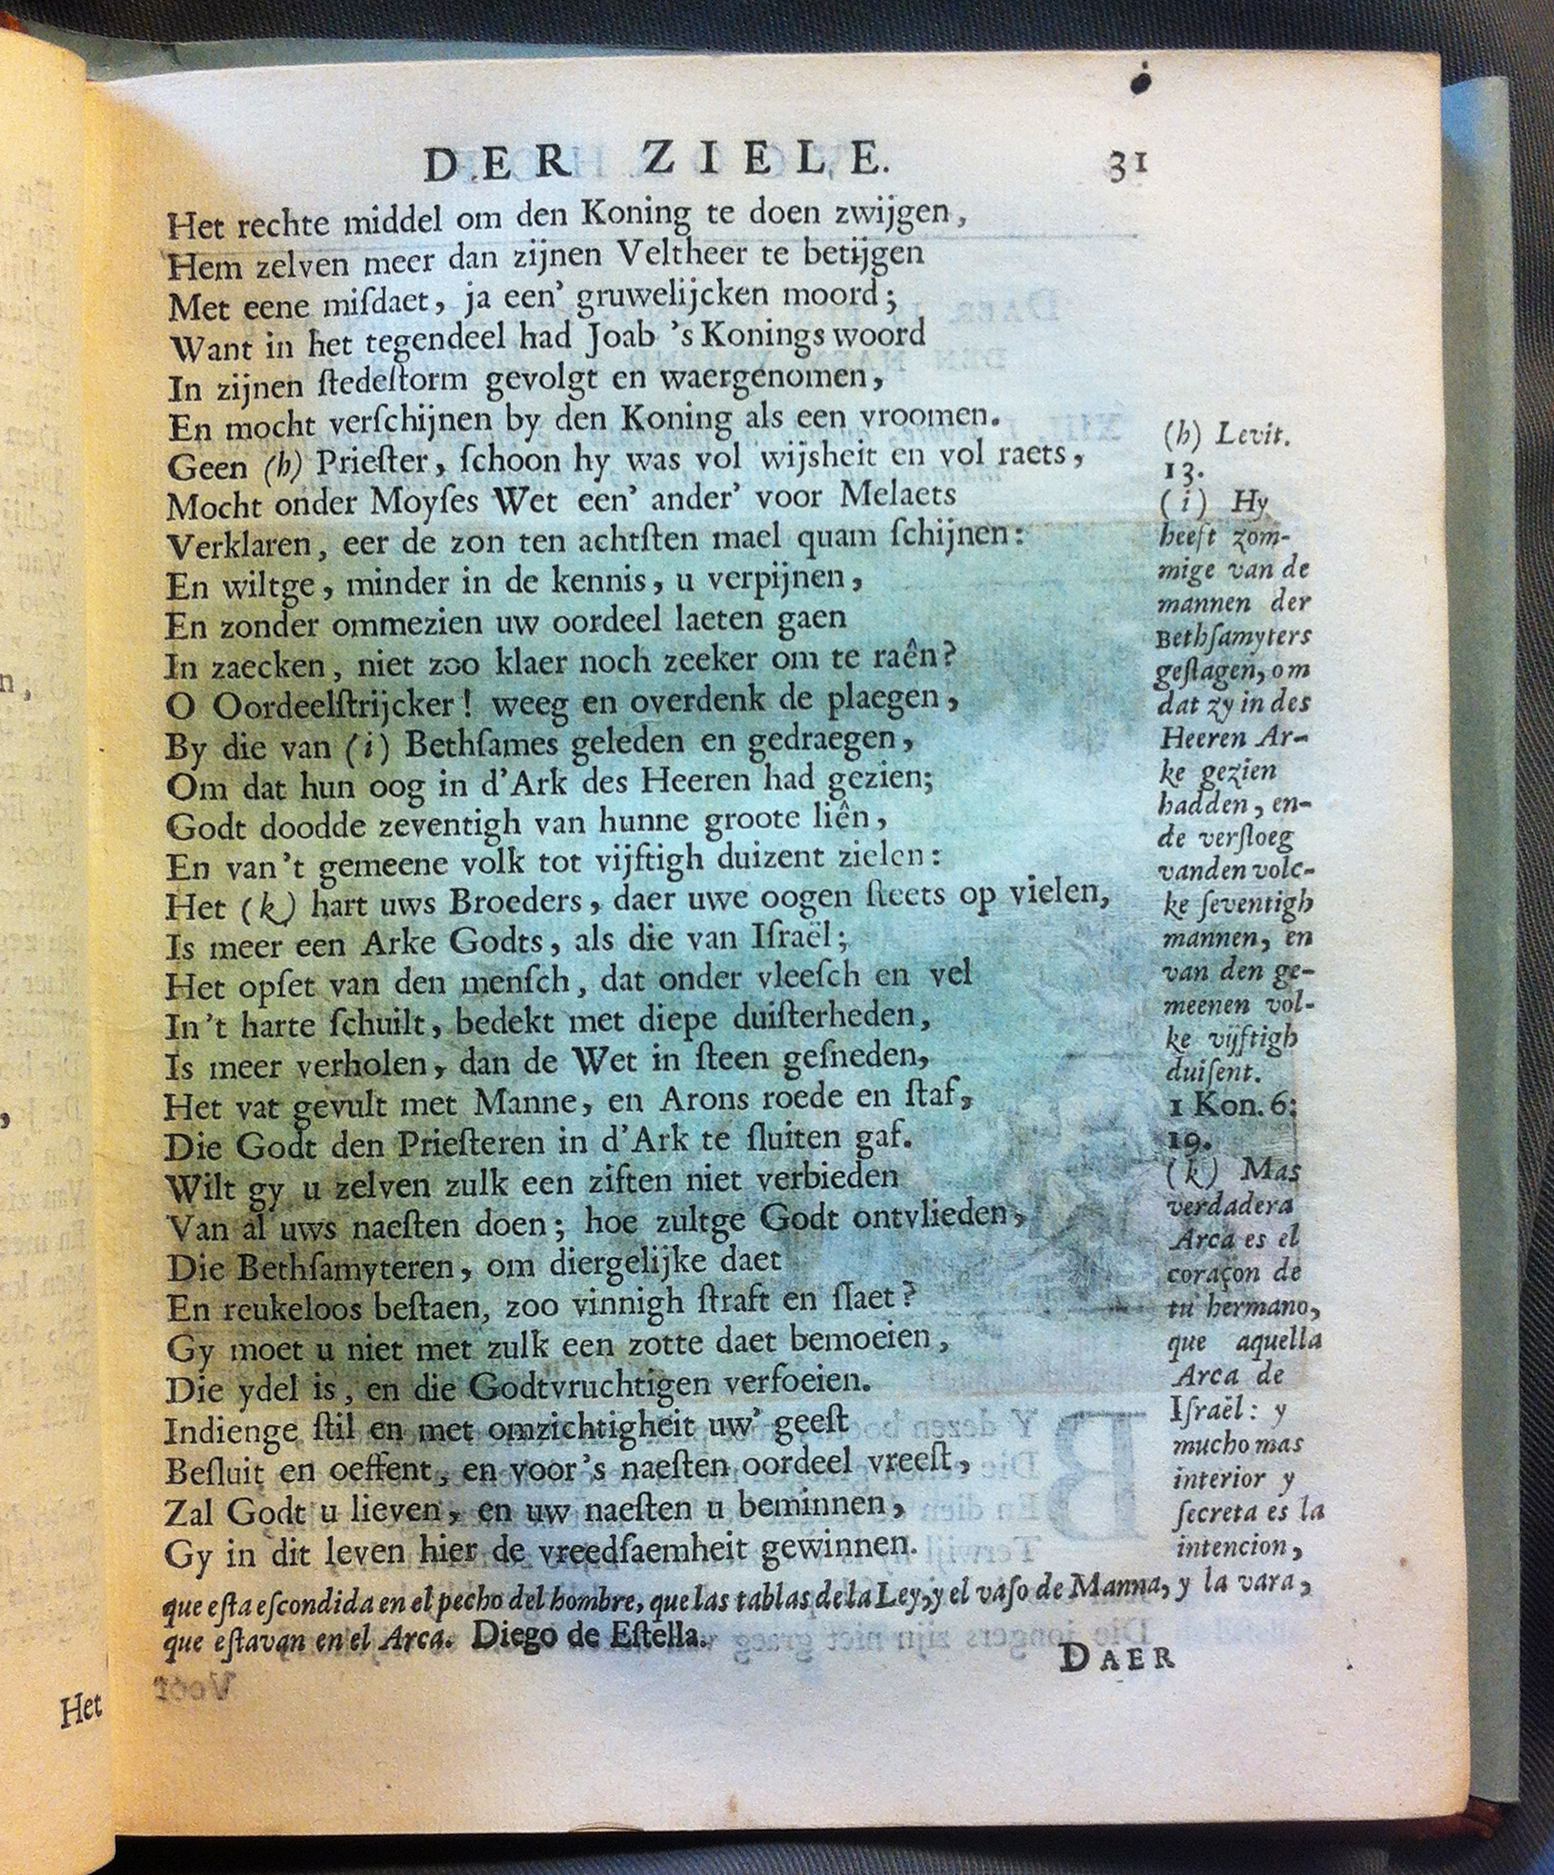 DER ZIELE. 31
Het rechte middel om den Koning te doen zwijgen,
Hem zelven meer dan zijnen Veltheer te betijgen
Met eene misdaet, ja een' gruwelijcken moord;
Want in het tegendeel had Joab 's Konings woord
In zijnen ſtedeſtorm gevolgt en waergenomen,
En mocht verſchijnen by den Koning als een vroomen.
Geen (h) Prieſter, ſchoon hy was vol wijsheit en vol raets,
Mocht onder Moyſes Wet een' ander' voor Melaets
Verklaren, eer de zon ten achtſten mael quam ſchijnen:
En wiltge, minder in de kennis, u verpijnen,
En zonder ommezien uw oordeel laeten gaen
In zaecken, niet zoo klaer noch zeeker om te raên?
O Oordeelſtrijcker! weeg en overdenk de plaegen,
By die van (i) Bethſames geleden en gedraegen,
Om dat hun oog in d'Ark des Heeren had gezien;
Godt doodde zeventigh van hunne groote liên,
En van't gemeene volk tot vijftigh duizent zielen:
Het (k) hart uws Broeders, daer uwe oogen ſteets op vielen,
Is meer een Arke Godts, als die van Iſraël;
Het opſet van den menſch, dat onder vleeſch en vel
In't harte ſchuilt, bedekt met diepe duiſterheden,
Is meer verholen, dan de Wet in ſteen geſneden,
Het vat gevult met Manne, en Arons roede en ſtaf,
Die Godt den Prieſteren in d'Ark te ſluiten gaf.
Wilt gy u zelven zulk een ziften niet verbieden
Van al uws naeſten doen; hoe zultge Godt ontvlieden,
Die Bethſamyteren, om diergelijke daet
En reukeloos beſtaen, zoo vinnigh ſtraft en ſlaet?
Gy moet u niet met zulk een zotte daet bemoeien,
Die ydel is, en die Godtvruchtigen verfoeien.
Indienge ſtil en met omzichtigheit uw' geeſt
Beſluit en oeffent, en voor's naeſten oordeel vreeſt,
Zal Godt u lieven, en uw naeſten u beminnen,
Gy in dit leven hier de vreedſaemheit gewinnen.
(h) Levit.
13.
(i) Hy
heeft zom-
mige van de
mannen der
Bethſamyters
geſlagen, om
dat zy in des
Heeren Ar-
ke gezien
hadden, en-
de verſloeg
vanden volc-
ke ſeventigh
mannen, en
van den ge-
meenen vol-
ke vijftigh
duiſent.
1 Kon. 6:
19.
(k) Mas
verdadera
Arca es el
coraçon de
tu hermano,
que aquella
Arca de
Iſraël: y
mucho mas
interior y
ſecreta es la
intencion,
que eſta eſcondida en el pecho del hombre, que las tablas de la Ley, y el vaſo de Manna, y la vara,
que eſtavan en el Arca. Diego de Eſtella.
DAER
Het